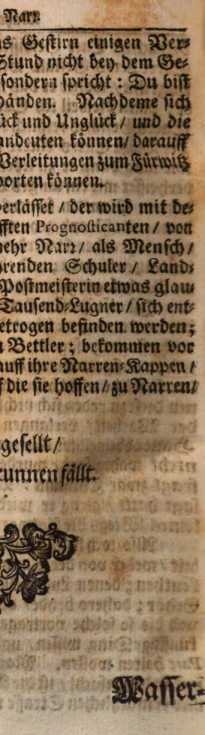 Narr.
as Gestirn einigen Ver-
Stund nicht bey dem Ge-
sondern spricht : Du bist
händen. Nachdeme sich
ück und Unglück / und die
andeuten können / darauff
Verleitungen zum Fürwitz
porten können.
verlässet / der wird mit de-
fften Prognosticanten / von
mehr Narr / als Mensch /
renden Schuler / Land-
Postmeisterin etwas glau-
Tausend-Lugner / sich ent-
etrogen befinden werden ;
Bettler ; bekommen vor
auff ihre Narren-Kappen /
ff die sie hoffen / zu Narren /
gesellt /
runnen fällt.
Wasser-